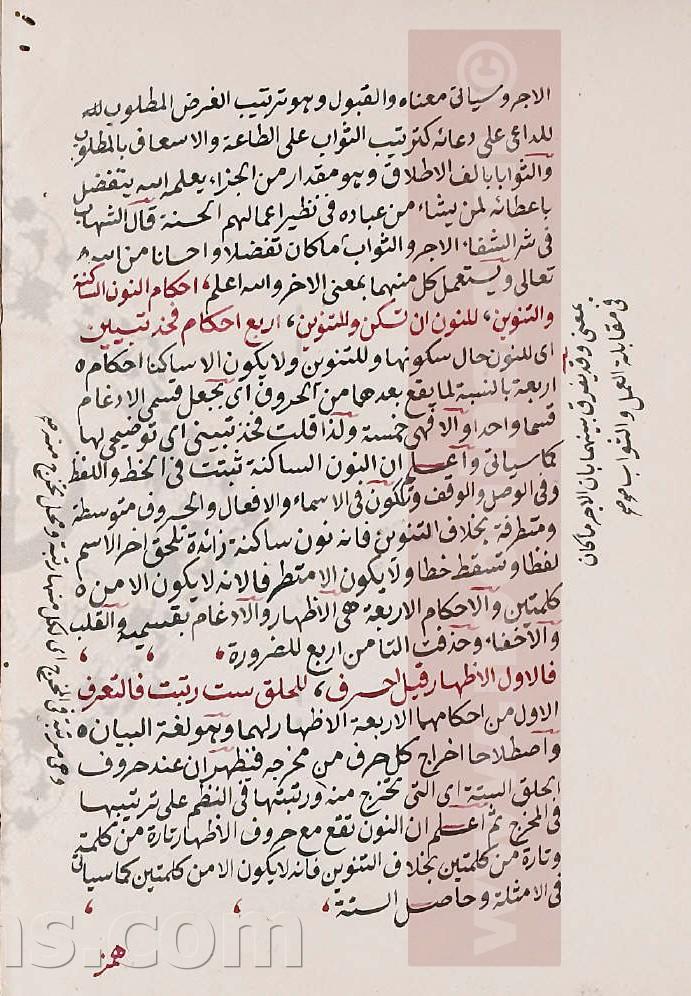 الاجر وسياتى معناه والقبول وهو ترتيب الغرض المطلوب لله
للداعى على دعائه كترتيب الثواب على الطاعة والاسعاف بالمطلوب
والثوابا بالف الاطلاق وهو مقدار من الجزاء يعلمه الله يتفضل
باعطائه لمن يشاء من عباده فى نظير اعمالهم الحسنة قال الشهاب
فى شر الشفاء الاجر والثواب ما كان تفضلا واحسانا من الله
تعالى ويستعمل كل منهما بمعنى الاخر والله اعلم احكام النون الساكنة
والتنوين، للنون ان تسكن وللتنوين، اربع احكام فخذ تبيين
اى للنون حال سكونها وللتنوين ولا يكون الا ساكنا احكام
اربعة بالنسبة لما يقع بعدهما من الحروف اى بجعل قسمى الادغام
قسما واحدا والا فهى خمسة ولذا قلت فخذ تبيينى اى توضيحى لها
كما سياتى واعلم ان النون الساكنة ثبتت فى الخط واللفظ
وفى الوصل والوقف وتكون فى الاسماء والافعال والحروف متوسطة
ومتطرفة بخلاف التنوين فانه نون ساكنة زائدة تلحق اخر الاسم
لفظا وتسقط خطا ولا يكون الا متطرفا لانه لا يكون الا من
كلمتين والاحكام الاربعة هى الاظهار والادغام بقسميه والقلب
والاخفاء وحذفت التا من اربع للضرورة
فالاول الاظهار قبل احرف، للحلق ست رتبت فالتعرف
الاول من احكامهما الاربعة الاظهار لهما وهو لغة البيان
واصطلاحا اخراج كل حرف من مخرجه فيظهران عند حروف
الحلق الستة اى التى تخرج منه ورتبتها فى النظم على ترتيبها
فى المخرج ثم اعلم ان النون تقع مع حروف الاظهار تارة من كلمة
وتارة من كلمتين بخلاف التنوين فانه لا يكون الا من كلمتين كما سياتى
فى الامثلة وحاصل الستة
همز
بمعنى وقد يفرق بينهما بان الاجر ما كان
فى مقابلة العمل والثواب